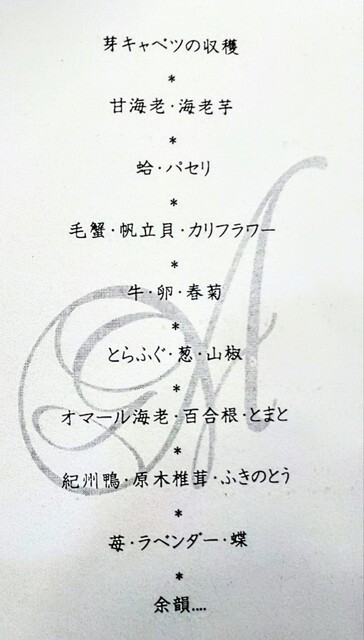 芽キャベツの収穫
*
甘海老・海老芋
*
蛤・パセリ
*
毛蟹・帆立貝・カリフラワー
*
牛・卵・春菊
*
とらふぐ・葱・山椒
*
オマール海老・百合根・とまと
*
紀州鴨・原木椎茸・ふきのとう
*
苺・ラベンダー・蝶
*
余韻....